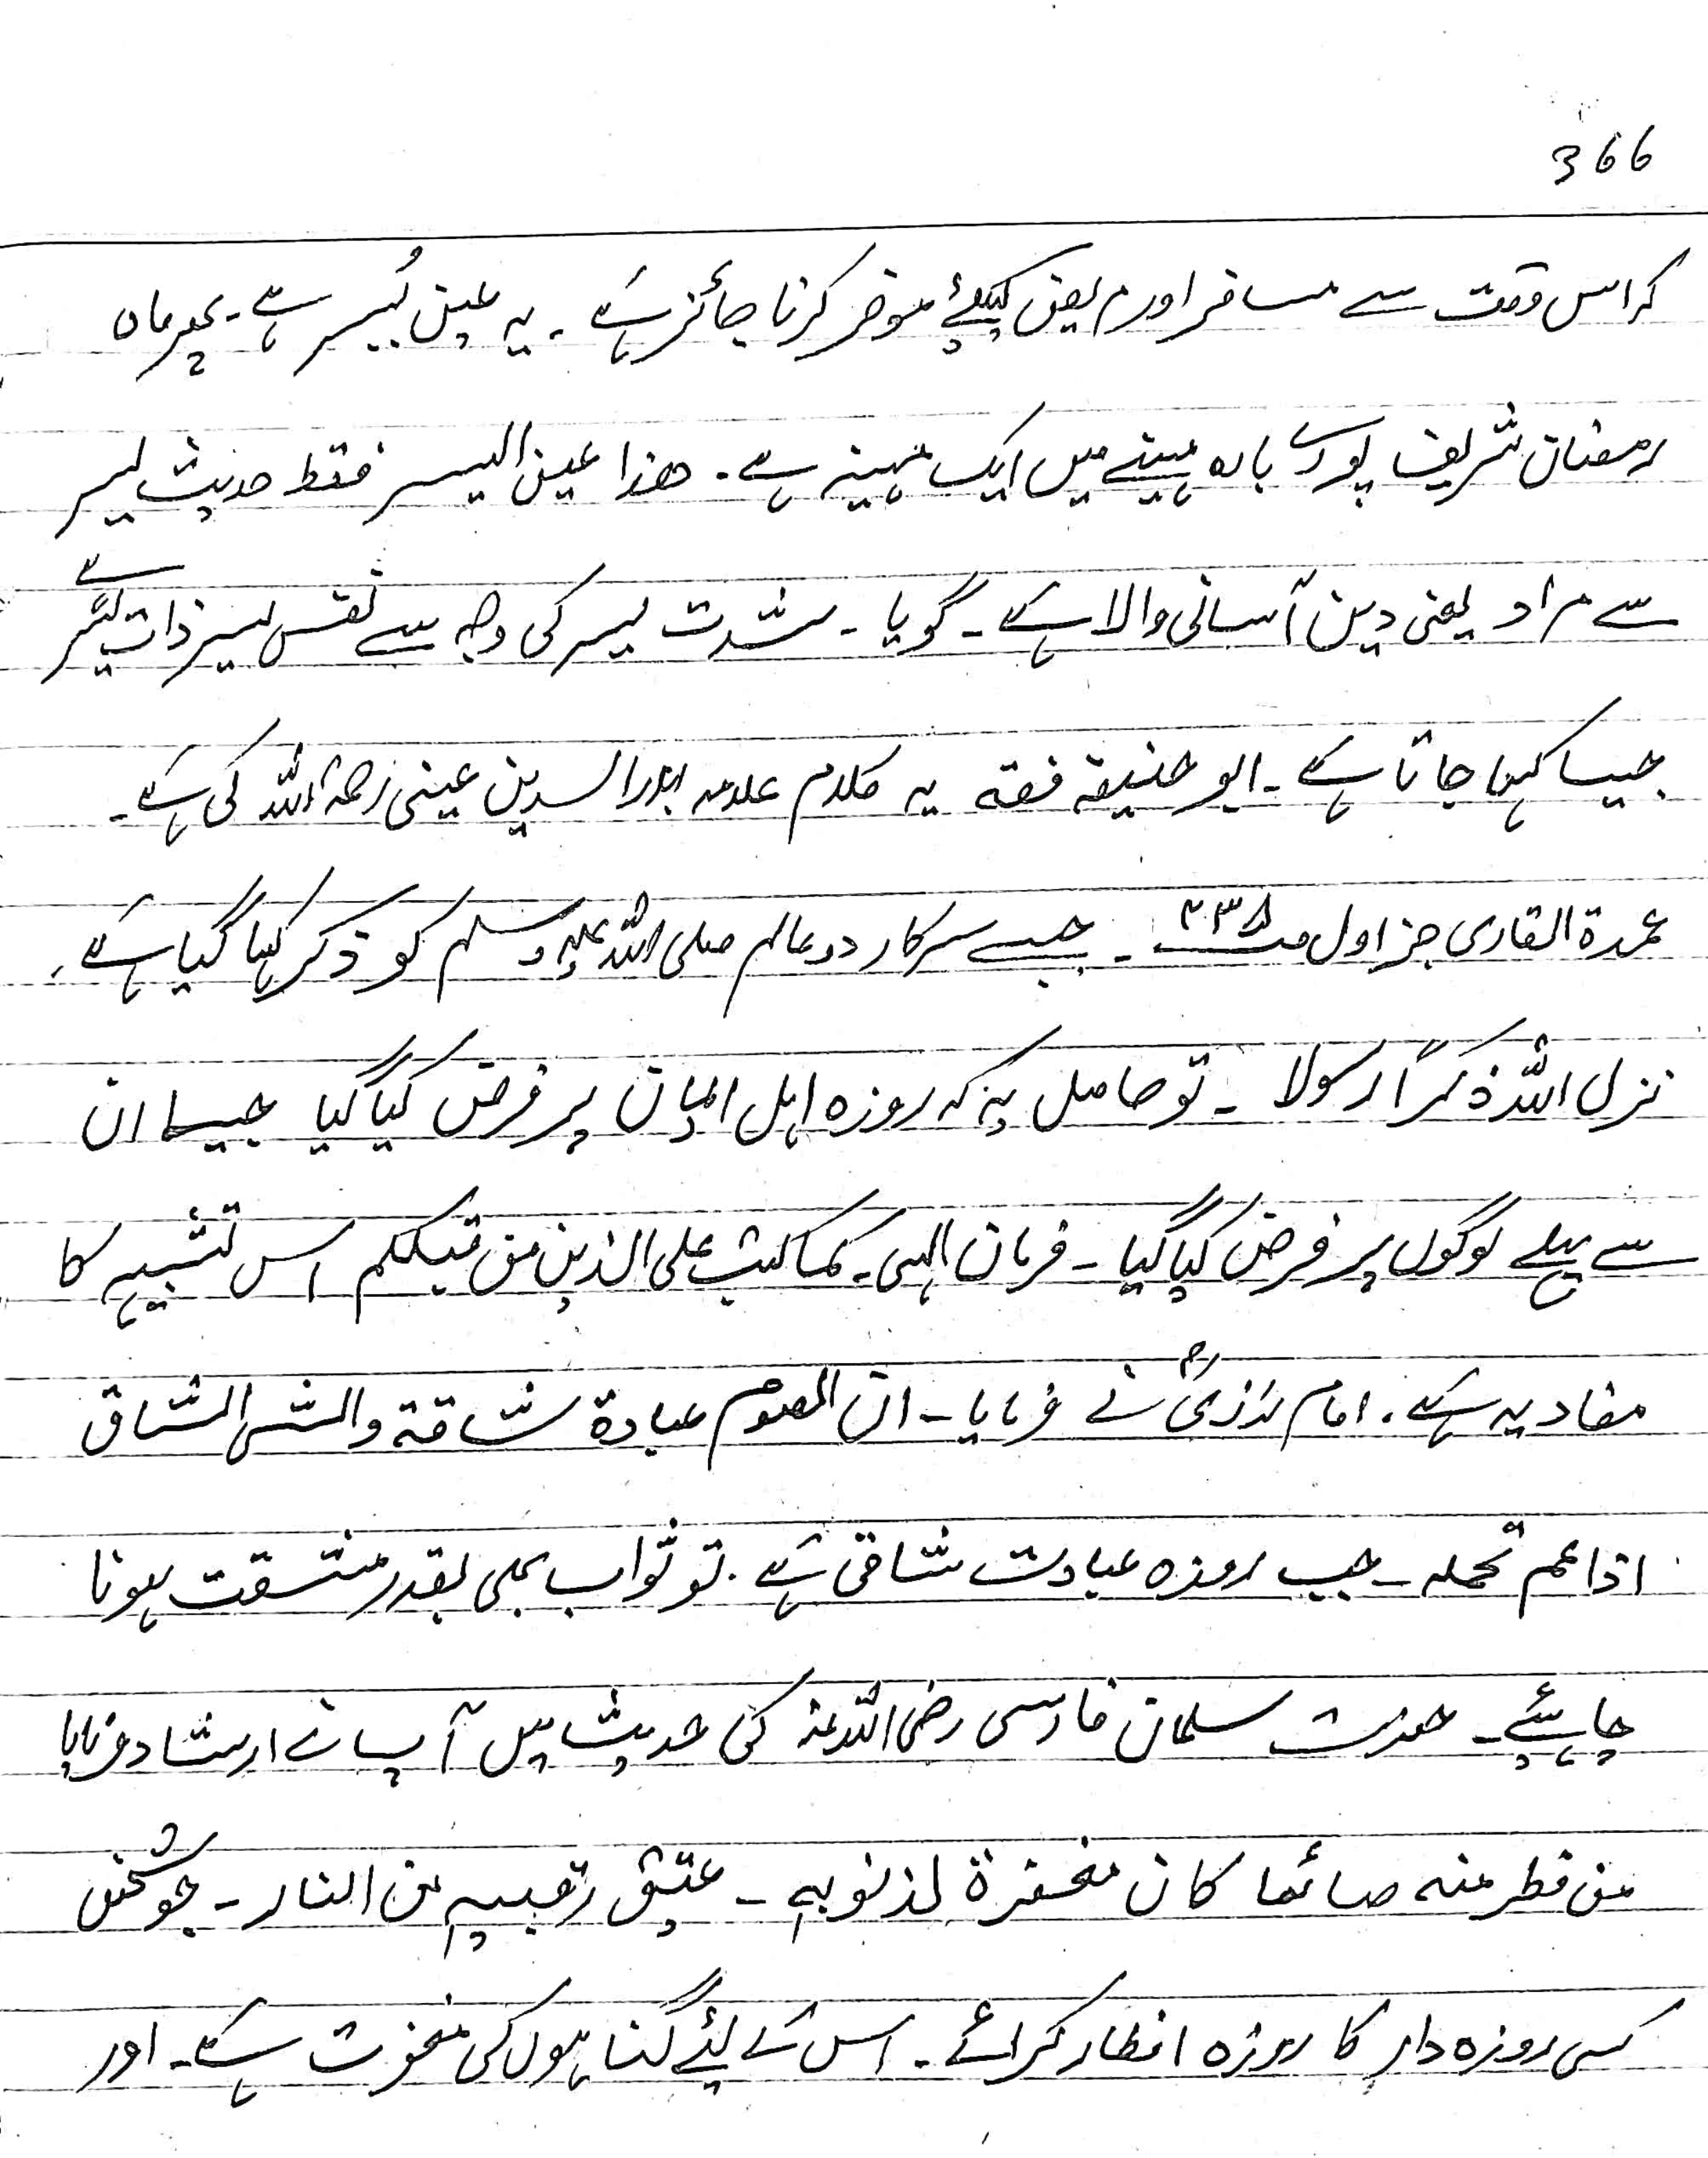 366
کہ اس وقت سے مسافر اور مریض کیلئے موخر کرنا جائز ہے۔ یہ عین یُسر ہے۔ پھر ماہ
رمضان شریف پورے بارہ مہینے میں ایک مہینہ ہے۔ ھذا عین الیسر فقط حدیث یسر
سے مراد یعنی دین آسانی والا ہے۔ گویا۔ شدت یسر کی وجہ سے نفس یسر ذات یُسر ہے
جیسا کہا جاتا ہے۔ ابو حنیفہ فقہ یہ کلام علامہ بدر الدین عینی رحمۃ اللہ کی ہے۔
عمدۃ القاری جز اول صـ ۲۳۵ ۔ جیسے سرکار دو عالم صلی اللہ علیہ وسلم کو ذکر کہا گیا ہے۔
نزل اللہ ذکرًا رسولا ۔ تو حاصل یہ کہ روزہ اہل ایمان پر فرض کیا گیا جیسا ان
سے پہلے لوگوں پر فرض کیا گیا۔ فرمان الہی۔ کما کتب علی الذین من قبلکم اس تشبیہ کا
مفاد یہ ہے۔ امام رازیؒ نے فرمایا۔ ان الصوم عبادۃ شاقۃ والشئ الشاق
اذا عم تحملہ۔ جب روزہ عبادت شاقی ہے۔ تو ثواب بھی بقدر مشقت ہونا
چاہیئے۔ حضرت سلمان فارسی رضی اللہ عنہ کی حدیث میں آپ نے ارشاد فرمایا
من فطر منہ صائما کان مغفرۃ لذنوبہ۔ عتیق رقبیہ من النار۔ جو شخص
کسی روزہ دار کا روزہ افطار کرائے۔ اس کے لیئے گناہوں کی مغفرت ہے۔ اور